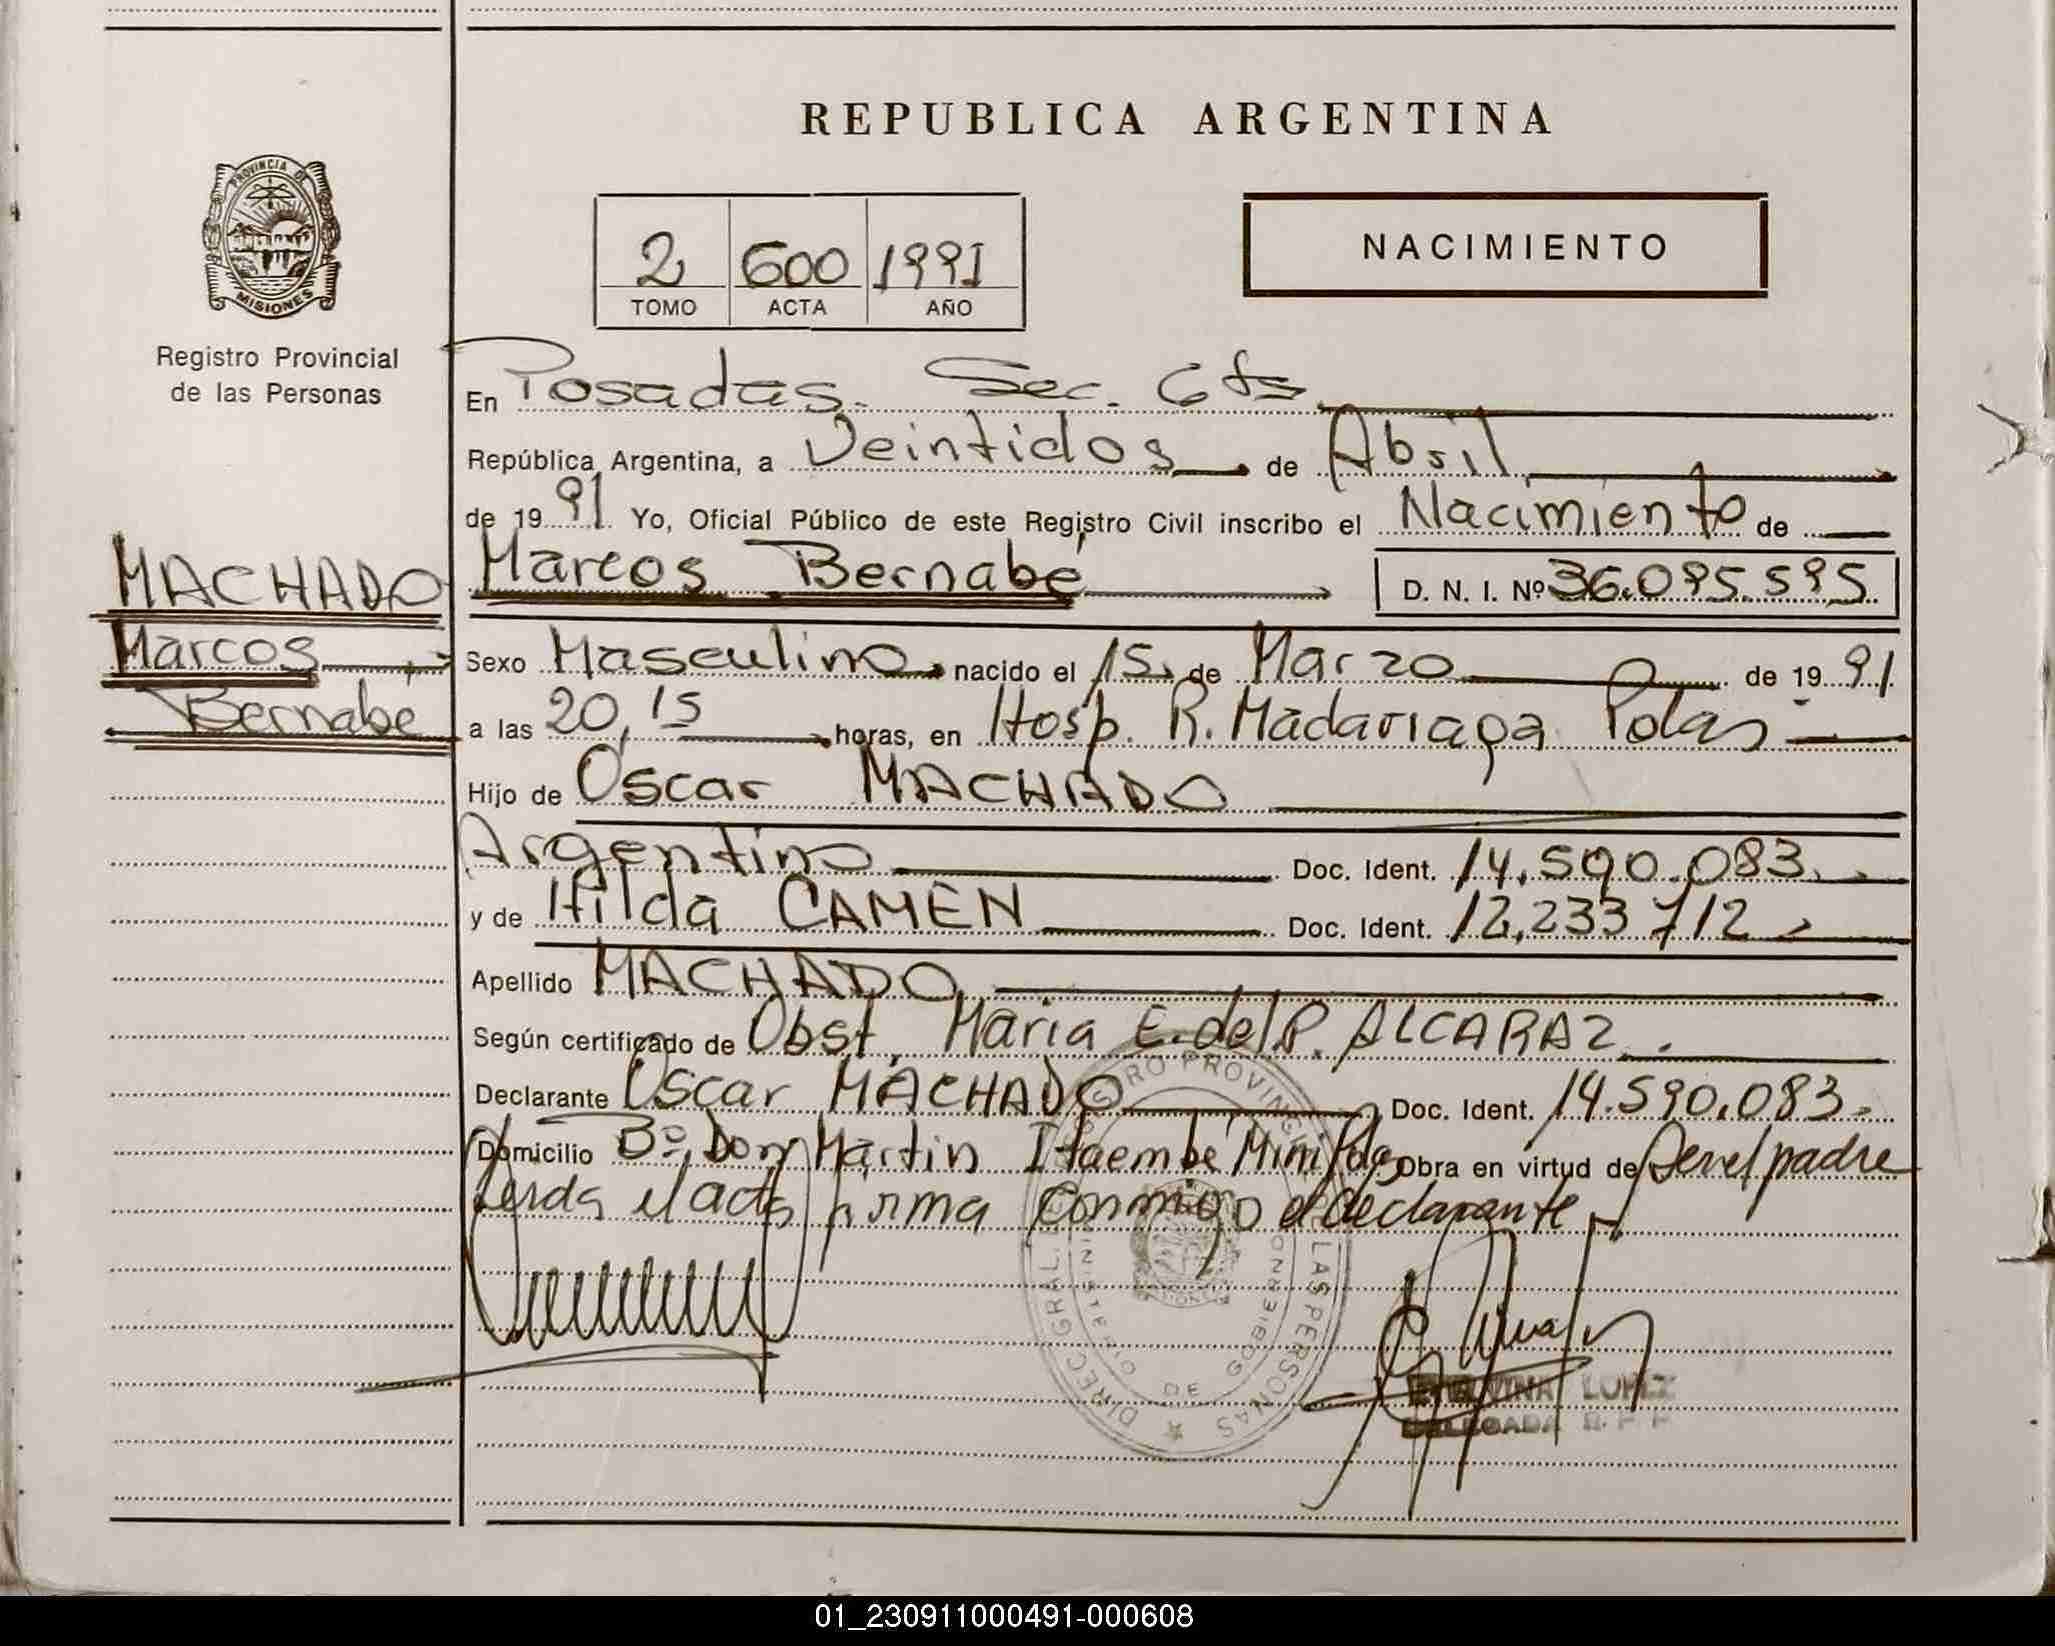 REPUBLICA ARGENTINA
PROVINCIA DE
MISIONES
Registro Provincial
de las Personas
2 600 1991
TOMO ACTA AÑO
NACIMIENTO
En Posadas. Sec. 6ta
República Argentina, a Veintidos de Abril
de 1991 Yo, Oficial Público de este Registro Civil inscribo el Nacimiento de
MACHADO
Marcos
Bernabe
Marcos Bernabé D. N. I. Nº 36.095.595
Sexo Masculino nacido el 15 de Marzo de 1991
a las 20,15 horas, en Hosp. R. Madariaga Pdas
Hijo de Oscar MACHADO
Argentino Doc. Ident. 14.590.083
y de Hilda CAMEN Doc. Ident. 12.233 712
Apellido MACHADO
Según certificado de Obst. Maria E. del P. ALCARAZ.
Declarante Oscar MACHADO Doc. Ident. 14.590.083
Domicilio Bº Don Martin Itaembé Mini Pdas Obra en virtud de Ser el padre
el acta firma conmigo el declarante
DIREC. GRAL. REGISTRO PROVINCIAL DE LAS PERSONAS
MINISTERIO DE GOBIERNO
LOPEZ
DELEGADA R. P. P.
01_230911000491-000608